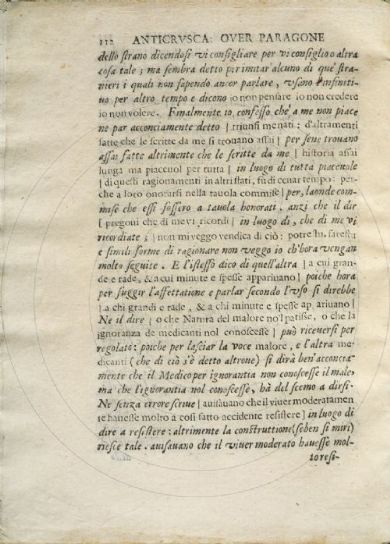 112 ANTICRVSCA: OVER PARAGONE
dello strano dicendosi vi consigliare per vi consiglio o altra
cosa tale; ma sembra detto per imitar alcuno di que' stra-
nieri i quali non sapendo ancor parlare, vsano l'infiniti-
uo per altro tempo e dicono io non pensare io non credere
io non volere. Finalmente io confesso che a me non piace
ne par acconciamente detto | triunfi menati: d'altramenti
fatte che le scritte da me si trouano assai | per sene trouano
assai fatte altrimente che le scritte da me | historia assai
lunga ma piaceuol per tutta | in luogo di tutta piaceuole
| di questi ragionamenti in altri stati, fin di cenar tempo: per-
che a loro onorarsi nella tauola commise | per, laonde com-
mise che essi fossero a tauola honorati, anzi che il dir
| pregoni che di me vi ricordi | in luogo di, che di me vi
ricordiate; | non mi veggo vendica di ciò: potre lu, faresti
e simili forme di ragionare non veggo io ch'hora vengan
molto seguite. E l'istesso dico di quell'altra | a cui gran-
de e rade, & a cui minute e spesse appariuano | poiche hora
per fuggir l'affettatione e parlar secondo l'vso si direbbe
| a chi grandi e rade, & a chi minute e spesse appariuano |
Ne il dire | o che Natura del malore nol patisse, o che la
ignoranza de medicanti nol conoscesse | può riceuersi per
regolato: poiche per lasciar la voce malore, e l'altra me-
dicanti (che di ciò s'è detto altroue) si dirà ben'acconcia-
mente che il Medico per ignorantia non conoscesse il male
ma che l'ignorantia nol conoscesse, hà del scemo a dirsi.
Ne senza errore scriue | auisauano che il viuer moderatamen
te hauesse molto a cosi fatto accidente resistere | in luogo di
dire a resistere: altrimente la construttione (seben si miri)
riesce tale. auisauano che il viuer moderato hauesse mol-
to resi-